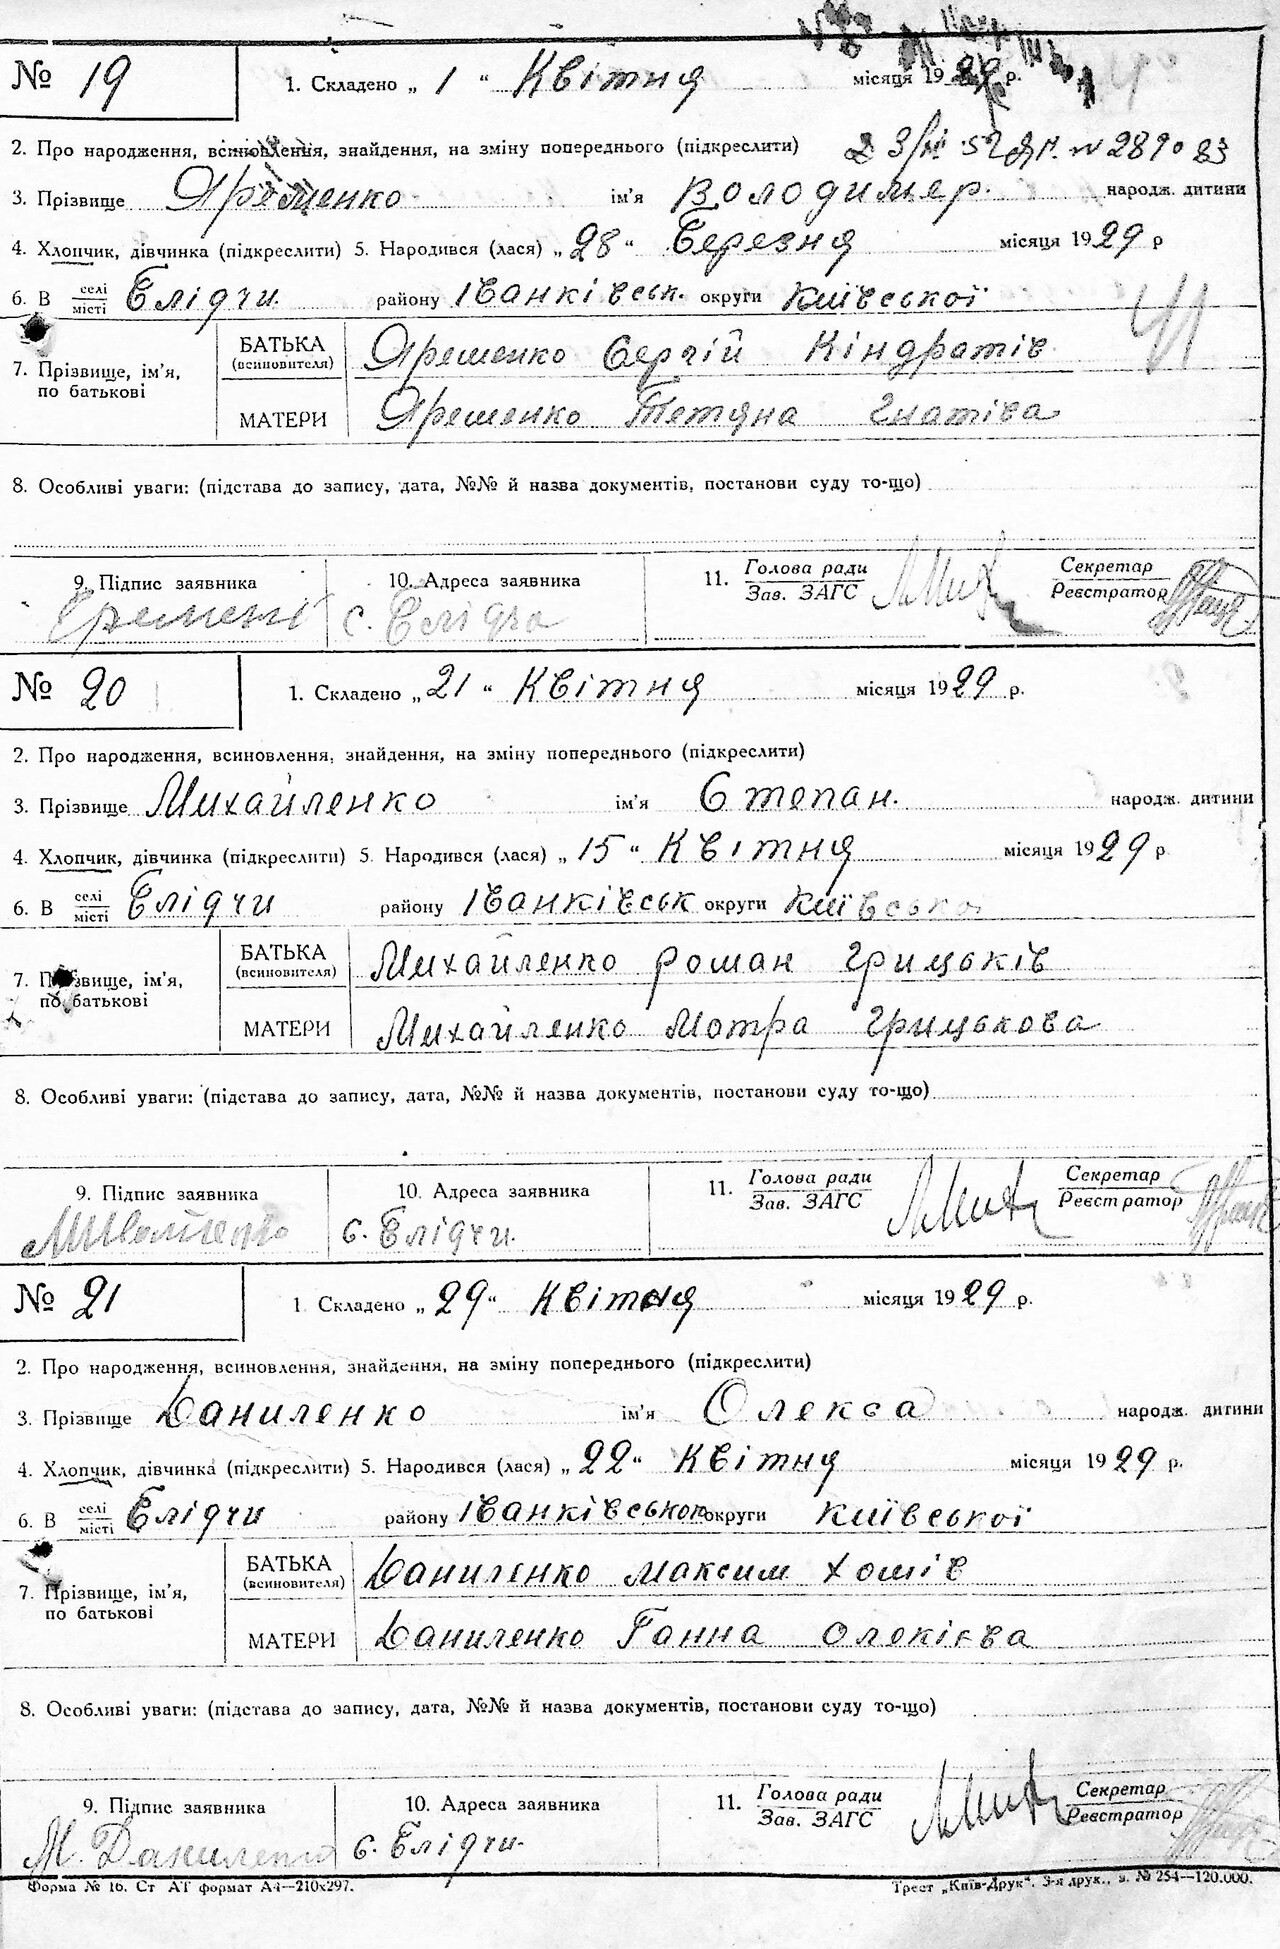 № 19 1. Складено „ 1 “ Квітня місяця 1929 р.
2. Про народження, всиновлення, знайдення, на зміну попереднього (підкреслити)
3. Прізвище Яременко ім'я Володимер. народж. дитини
4. Хлопчик, дівчинка (підкреслити) 5. Народився (лася) „ 28 “ Березня місяця 1929 р
6. В селі місті Блідчи. району Іванківськ. округи Київської
7. Прізвище, ім'я, по батькові
БАТЬКА (всиновителя) Яременко Сергій Кіндратів
МАТЕРИ Яременко Тетяна Гнатівa
8. Особливі уваги: (підстава до запису, дата, №№ й назва документів, постанови суду то-що)
9. Підпис заявника 10. Адреса заявника 11. Голова ради Зав. ЗАГС Секретар Реєстратор
с. Блідча
№ 20 1. Складено „ 21 “ Квітня місяця 1929 р.
2. Про народження, всиновлення, знайдення, на зміну попереднього (підкреслити)
3. Прізвище Михайленко ім'я Степан. народж. дитини
4. Хлопчик, дівчинка (підкреслити) 5. Народився (лася) „ 15 “ Квітня місяця 1929 р.
6. В селі місті Блідчи району Іванківськ округи Київсько
7. Прізвище, ім'я, по батькові
БАТЬКА (всиновителя) Михайленко Роман Грицьків
МАТЕРИ Михайленко Мотра Грицькова
8. Особливі уваги: (підстава до запису, дата, №№ й назва документів, постанови суду то-що)
9. Підпис заявника 10. Адреса заявника 11. Голова ради Зав. ЗАГС Секретар Реєстратор
с. Блідчи.
№ 21 1. Складено „ 29 “ Квітня місяця 1929 р.
2. Про народження, всиновлення, знайдення, на зміну попереднього (підкреслити)
3. Прізвище Даниленко ім'я Олекса народж. дитини
4. Хлопчик, дівчинка (підкреслити) 5. Народився (лася) „ 22 “ Квітня місяця 1929 р.
6. В селі місті Блідчи району Іванківсько округи Київської
7. Прізвище, ім'я, по батькові
БАТЬКА (всиновителя) Даниленко Максим Хомів
МАТЕРИ Даниленко Ганна
8. Особливі уваги: (підстава до запису, дата, №№ й назва документів, постанови суду то-що)
9. Підпис заявника 10. Адреса заявника 11. Голова ради Зав. ЗАГС Секретар Реєстратор
М. Даниленко с. Блідчи.
Форма № 16. Ст АТ формат А4—210х297. Трест „Київ-Друк“. 3-я друк., з. № 254—120.000.